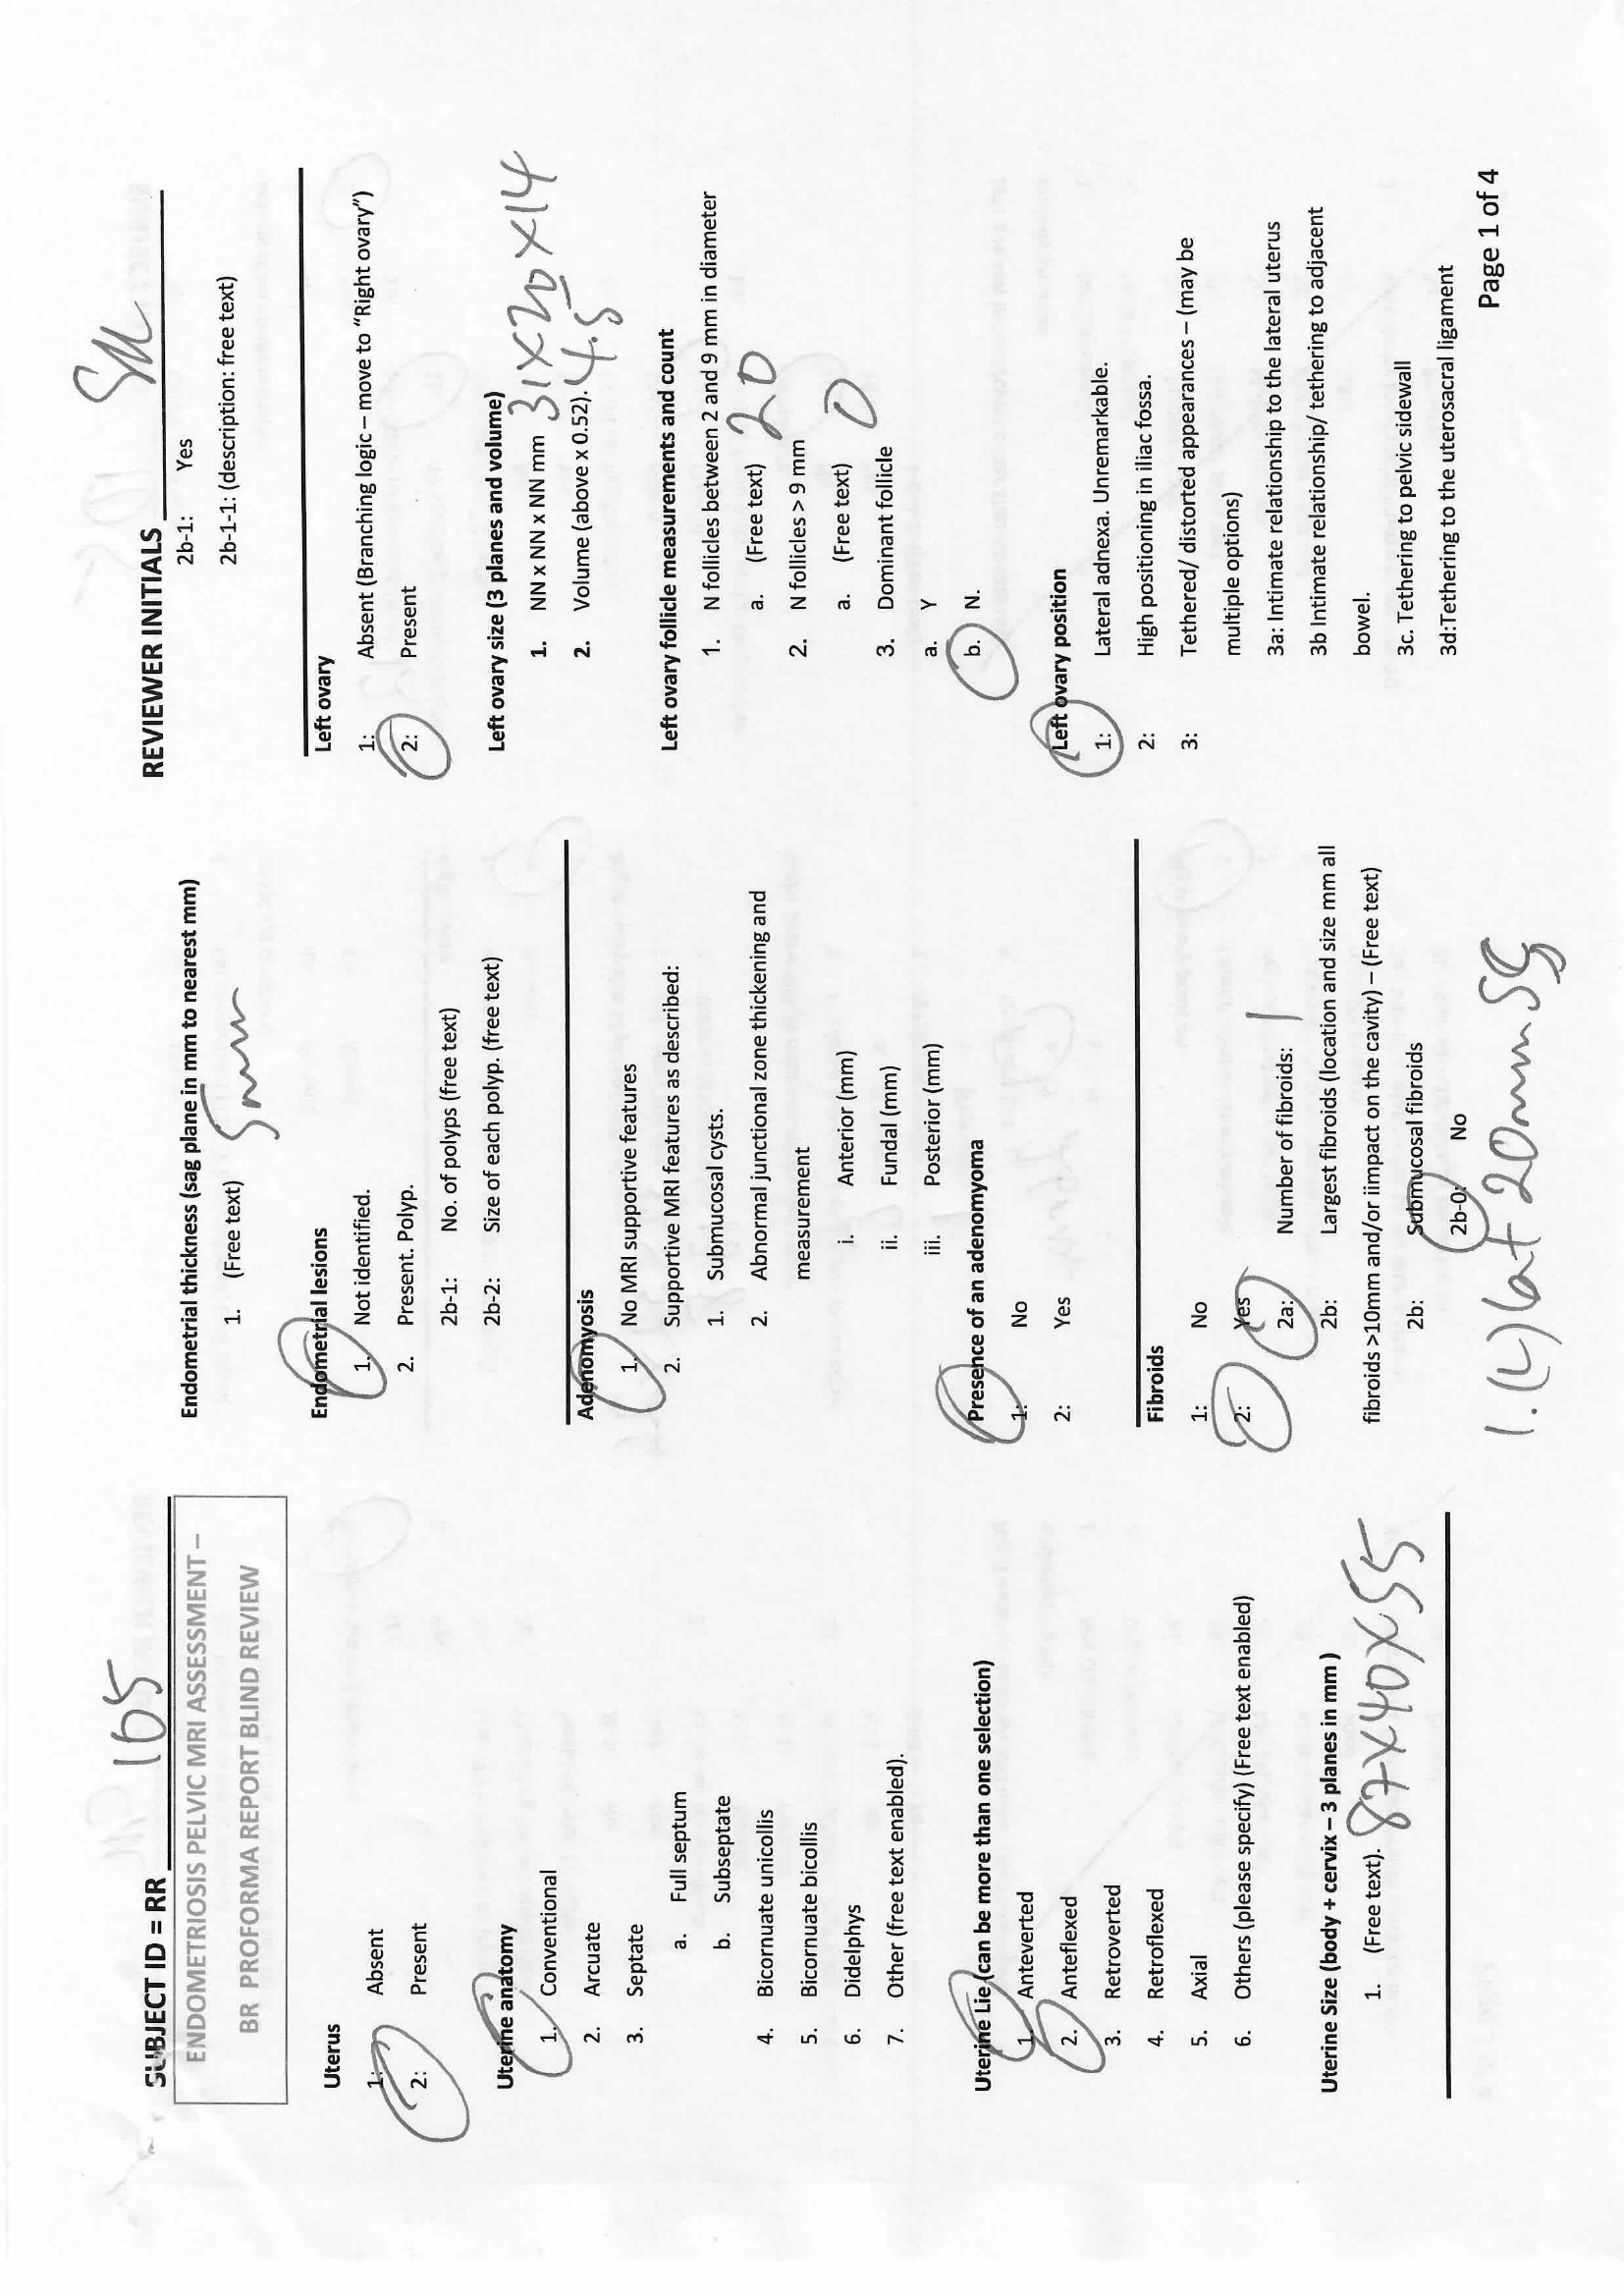 SUBJECT ID = RR 165
ENDOMETRIOSIS PELVIC MRI ASSESSMENT –
BR PROFORMA REPORT BLIND REVIEW
Uterus
1: Absent
2: Present
Uterine anatomy
1. Conventional
2. Arcuate
3. Septate
a. Full septum
b. Subseptate
4. Bicornuate unicollis
5. Bicornuate bicollis
6. Didelphys
7. Other (free text enabled).
Uterine Lie (can be more than one selection)
1. Anteverted
2. Anteflexed
3. Retroverted
4. Retroflexed
5. Axial
6. Others (please specify) (Free text enabled)
Uterine Size (body + cervix – 3 planes in mm )
1. (Free text). 87x40x55
Endometrial thickness (sag plane in mm to nearest mm)
1. (Free text) 5mm
Endometrial lesions
1. Not identified.
2. Present. Polyp.
2b-1: No. of polyps (free text)
2b-2: Size of each polyp. (free text)
Adenomyosis
1. No MRI supportive features
2. Supportive MRI features as described:
1. Submucosal cysts.
2. Abnormal junctional zone thickening and
measurement
i. Anterior (mm)
ii. Fundal (mm)
iii. Posterior (mm)
Presence of an adenomyoma
1: No
2: Yes
Fibroids
1: No
2: Yes
2a: Number of fibroids: 1
2b: Largest fibroids (location and size mm all
fibroids >10mm and/or iimpact on the cavity) – (Free text)
2b: Submucosal fibroids
2b-0: No
1. (L) lat 20mm SS
REVIEWER INITIALS SM
2b-1: Yes
2b-1-1: (description: free text)
Left ovary
1: Absent (Branching logic – move to “Right ovary”)
2: Present
Left ovary size (3 planes and volume)
1. NN x NN x NN mm 31x20x14
2. Volume (above x 0.52). 4.5
Left ovary follicle measurements and count
1. N follicles between 2 and 9 mm in diameter
a. (Free text) 20
2. N follicles > 9 mm
a. (Free text) 0
3. Dominant follicle
a. Y
b. N.
Left ovary position
1: Lateral adnexa. Unremarkable.
2: High positioning in iliac fossa.
3: Tethered/ distorted appearances – (may be
multiple options)
3a: Intimate relationship to the lateral uterus
3b Intimate relationship/ tethering to adjacent
bowel.
3c. Tethering to pelvic sidewall
3d:Tethering to the uterosacral ligament
Page 1 of 4